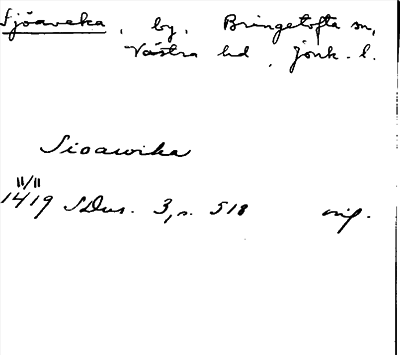 Sjöaveka, by, Bringetofta sn,
Västra hd, Jönk. l.
Sioawika
11/11
1419 SDns. 3, s. 518 orig.